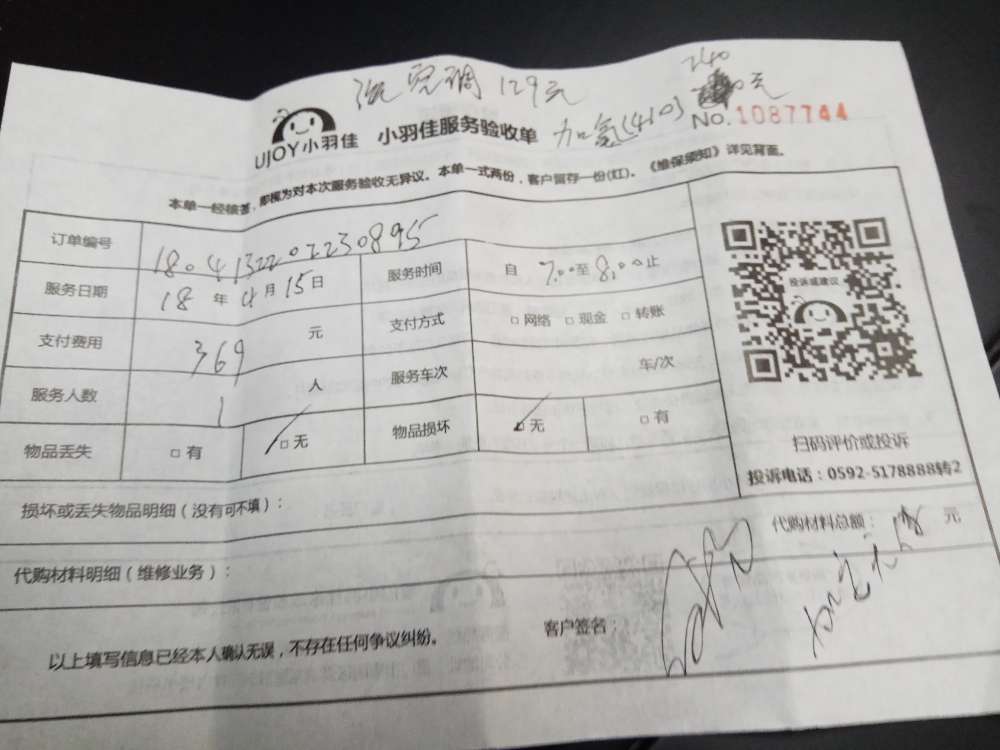 洗空调129元
240
加氟(410) 元
UJOY小羽佳 小羽佳服务验收单 No.1087744
本单一经核签，即视为对本次服务验收无异议。本单一式两份，客户留存一份(红)。《维保须知》详见背面。
订单编号 1804132202230895
服务日期 18年4月15日 服务时间 自7:00至8:00止
支付费用 369元 支付方式 □网络 □现金 □转账
服务人数 1人 服务车次 车/次
物品丢失 □有 □无 物品损坏 □无 □有
投诉或建议
扫码评价或投诉
投诉电话：0592-5178888转2
损坏或丢失物品明细（没有可不填）：
代购材料总额： 元
代购材料明细（维修业务）：
以上填写信息已经本人确认无误，不存在任何争议纠纷。
客户签名：